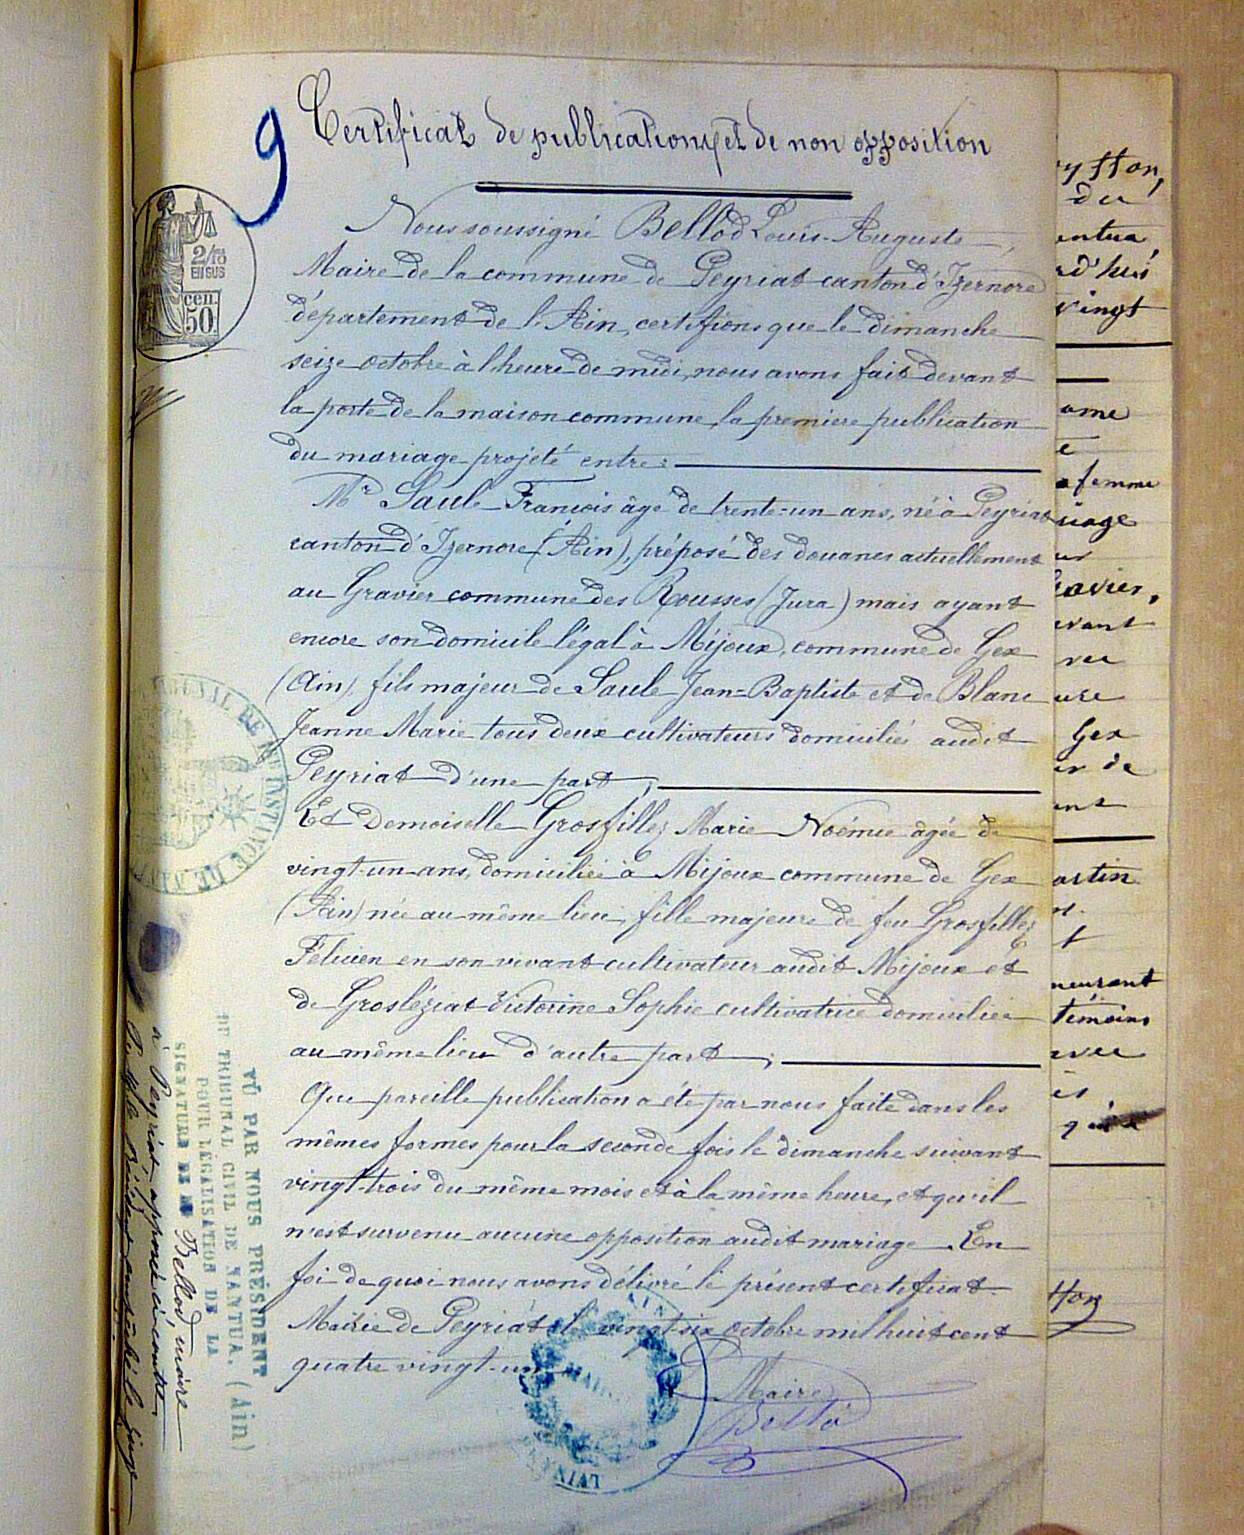 9
Certificat de publications et de non opposition
2/10
EN SUS
50 cen.
Nous soussigné Bellod Louis-Auguste,
Maire de la commune de Peyriat canton d'Izernore
département de l'Ain, certifions que le dimanche
seize octobre à l'heure de midi, nous avons fait devant
la porte de la maison commune, la premiere publication
du mariage projeté entre :
Mr Saule François âgé de trente-un ans, né à Peyriat
canton d'Izernore (Ain), préposé des douanes actuellement
au Gravier commune des Rousses (Jura) mais ayant
encore son domicile légal à Mijoux, commune de Gex
(Ain), fils majeur de Saule Jean-Baptiste et de Blanc
Jeanne Marie tous deux cultivateurs domiciliés audit
Peyriat d'une part ;
Et Demoiselle Grosfillez Marie Noémie âgée de
vingt-un ans, domiciliée à Mijoux commune de Gex
(Ain) née au même lieu, fille majeure de feu Grosfillez
Félicien en son vivant cultivateur audit Mijoux et
de Grosléziat Victorine Sophie cultivatrice domiciliée
au même lieu d'autre part ;
Que pareille publication a été par nous faite dans les
mêmes formes pour la seconde fois le dimanche suivant
vingt-trois du même mois et à la même heure, et qu'il
n'est survenu aucune opposition audit mariage. En
foi de quoi nous avons délivré le présent certificat
Mairie de Peyriat le vingt-six octobre mil huit cent
quatre vingt-un
Maire
Bellod
MAIRIE
AIN
TRIBUNAL DE 1re INSTANCE DE NANTUA
VU PAR NOUS PRÉSIDENT
DU TRIBUNAL CIVIL DE NANTUA. (Ain)
POUR LÉGALISATION DE LA
SIGNATURE DE M Bellod, maire
à Peyriat, apposée ci-contre
du
vingt
femme
Gex
de
témoins